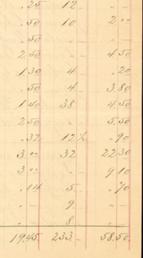 .25 12 - -
.50 10 2.00
.50 - - -
2.50 - 4.50
1.30 4 .20
.50 4 3.80
1.50 38 4.50
2.50 - 5.50
.32 12½ .90
3.00 32 22.30
3.00 - 9.10
.14 5 .70
- 9 -
- 8 -
19.45 233 58.50